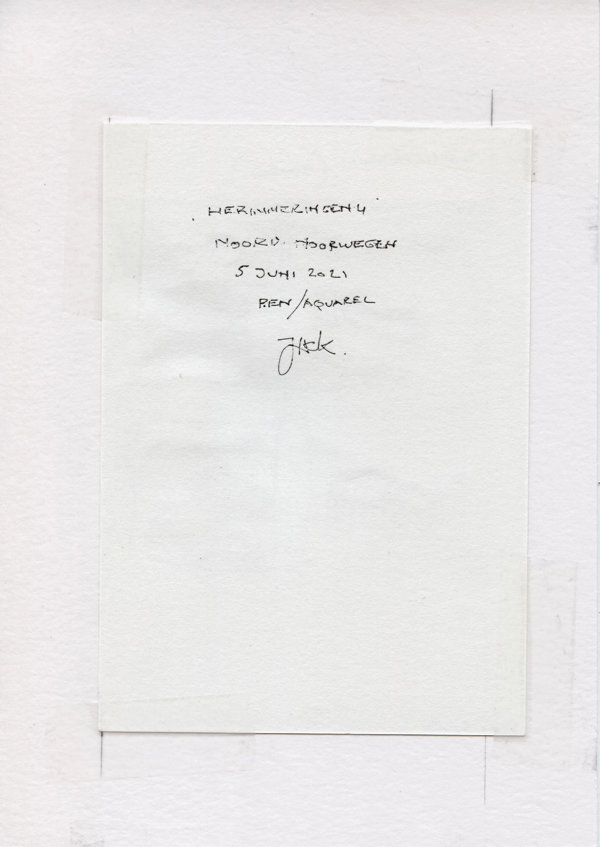 HERINNERINGEN 4
NOORD. NOORWEGEN
5 JUNI 2021
PEN/AQUAREL